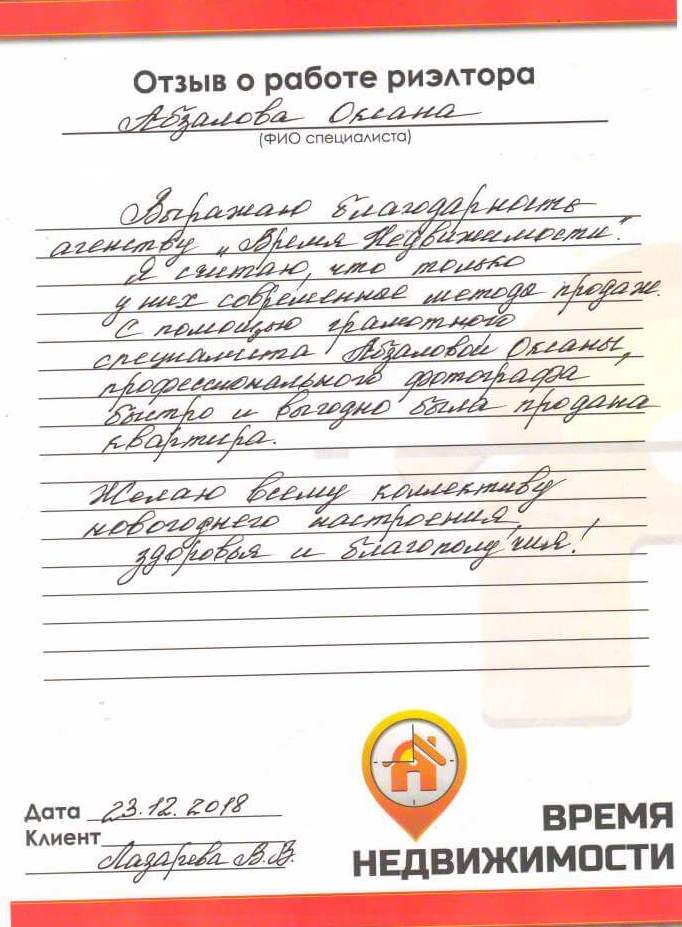 Отзыв о работе риэлтора
Абзалова Оксана
(ФИО специалиста)
Выражаю благодарность
агенству „Время Недвижимости".
Я считаю, что только
у них современные методы продаж.
С помощью грамотного
специалиста Абзаловой Оксаны,
профессионального фотографа
быстро и выгодно была продана
квартира.
Желаю всему коллективу
новогоднего настроения,
здоровья и благополучия!
Дата 23.12.2018
Клиент
Лазарева В.В.
ВРЕМЯ
НЕДВИЖИМОСТИ